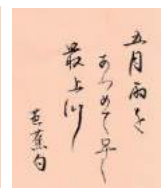 五月雨を
あつめて早し
最上川
芭蕉句